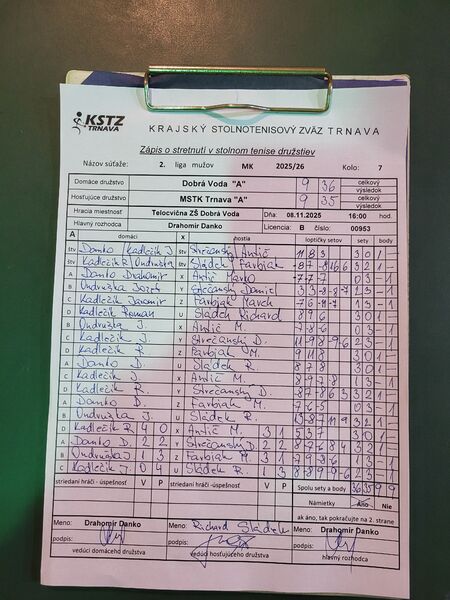 KSTZ
TRNAVA
KRAJSKÝ STOLNOTENISOVÝ ZVÄZ TRNAVA
Zápis o stretnutí v stolnom tenise družstiev
Názov súťaže: 2. liga mužov MK 2025/26 Kolo: 7
Domáce družstvo Dobrá Voda "A" 9 36 celkový výsledok
Hosťujúce družstvo MSTK Trnava "A" 9 35 celkový výsledok
Hracia miestnosť Telocvičňa ZŠ Dobrá Voda Dňa: 08.11.2025 16:00 hod.
Hlavný rozhodca Drahomír Danko Licencia: B číslo: 00953
A domáci X hostia loptičky setov sety body
štv Danko / Kadlečík J. štv Strečanský Antič 11 8 3 3 0 1 -
štv Kadlečík R. Ondruška štv Sládek Farbiak 3 2 1 -
A Danko Drahomír X Antič Marko 0 3 - 1
B Ondruška Jozef Y Strečanský Damis 2 3 - 1
C Kadlečík Jaromír Z Farbiak Marek - 1
D Kadlečík Roman U Sládek Richard 8 9 6 3 0 1 -
B Ondruška J. X Antič M. 0 3 - 1
C Kadlečík J. Y Strečanský D. 2 3 - 1
D Kadlečík R. Z Farbiak M. 9 11 8 3 0 1 -
A Danko D. U Sládek R. 8 7 8 3 0 1 -
C Kadlečík J. X Antič M. 1 3 - 1
D Kadlečík R. Y Strečanský D. 3 2 1 -
A Danko D. Z Farbiak M. 0 3 - 1
B Ondruška J. U Sládek R. 3 2 1 -
D Kadlečík R. 4 0 X Antič M. 3 1 3 3 7 3 0 1 -
A Danko D. 2 2 Y Strečanský D. 2 2 3 2 1 -
B Ondruška J. 1 3 Z Farbiak M. 3 1 1 3 - 1
C Kadlečík J. 0 4 U Sládek R. 1 3 2 3 - 1
striedaní hráči - úspešnosť V P striedaní hráči - úspešnosť V P Spolu sety a body 36 35 9 9
Námietky Áno Nie
ak áno, tak pokračujte na 2. strane
Meno: Drahomír Danko Meno: Richard Sládek Meno: Drahomír Danko
podpis: podpis: podpis:
vedúci domáceho družstva vedúci hosťujúceho družstva hlavný rozhodca